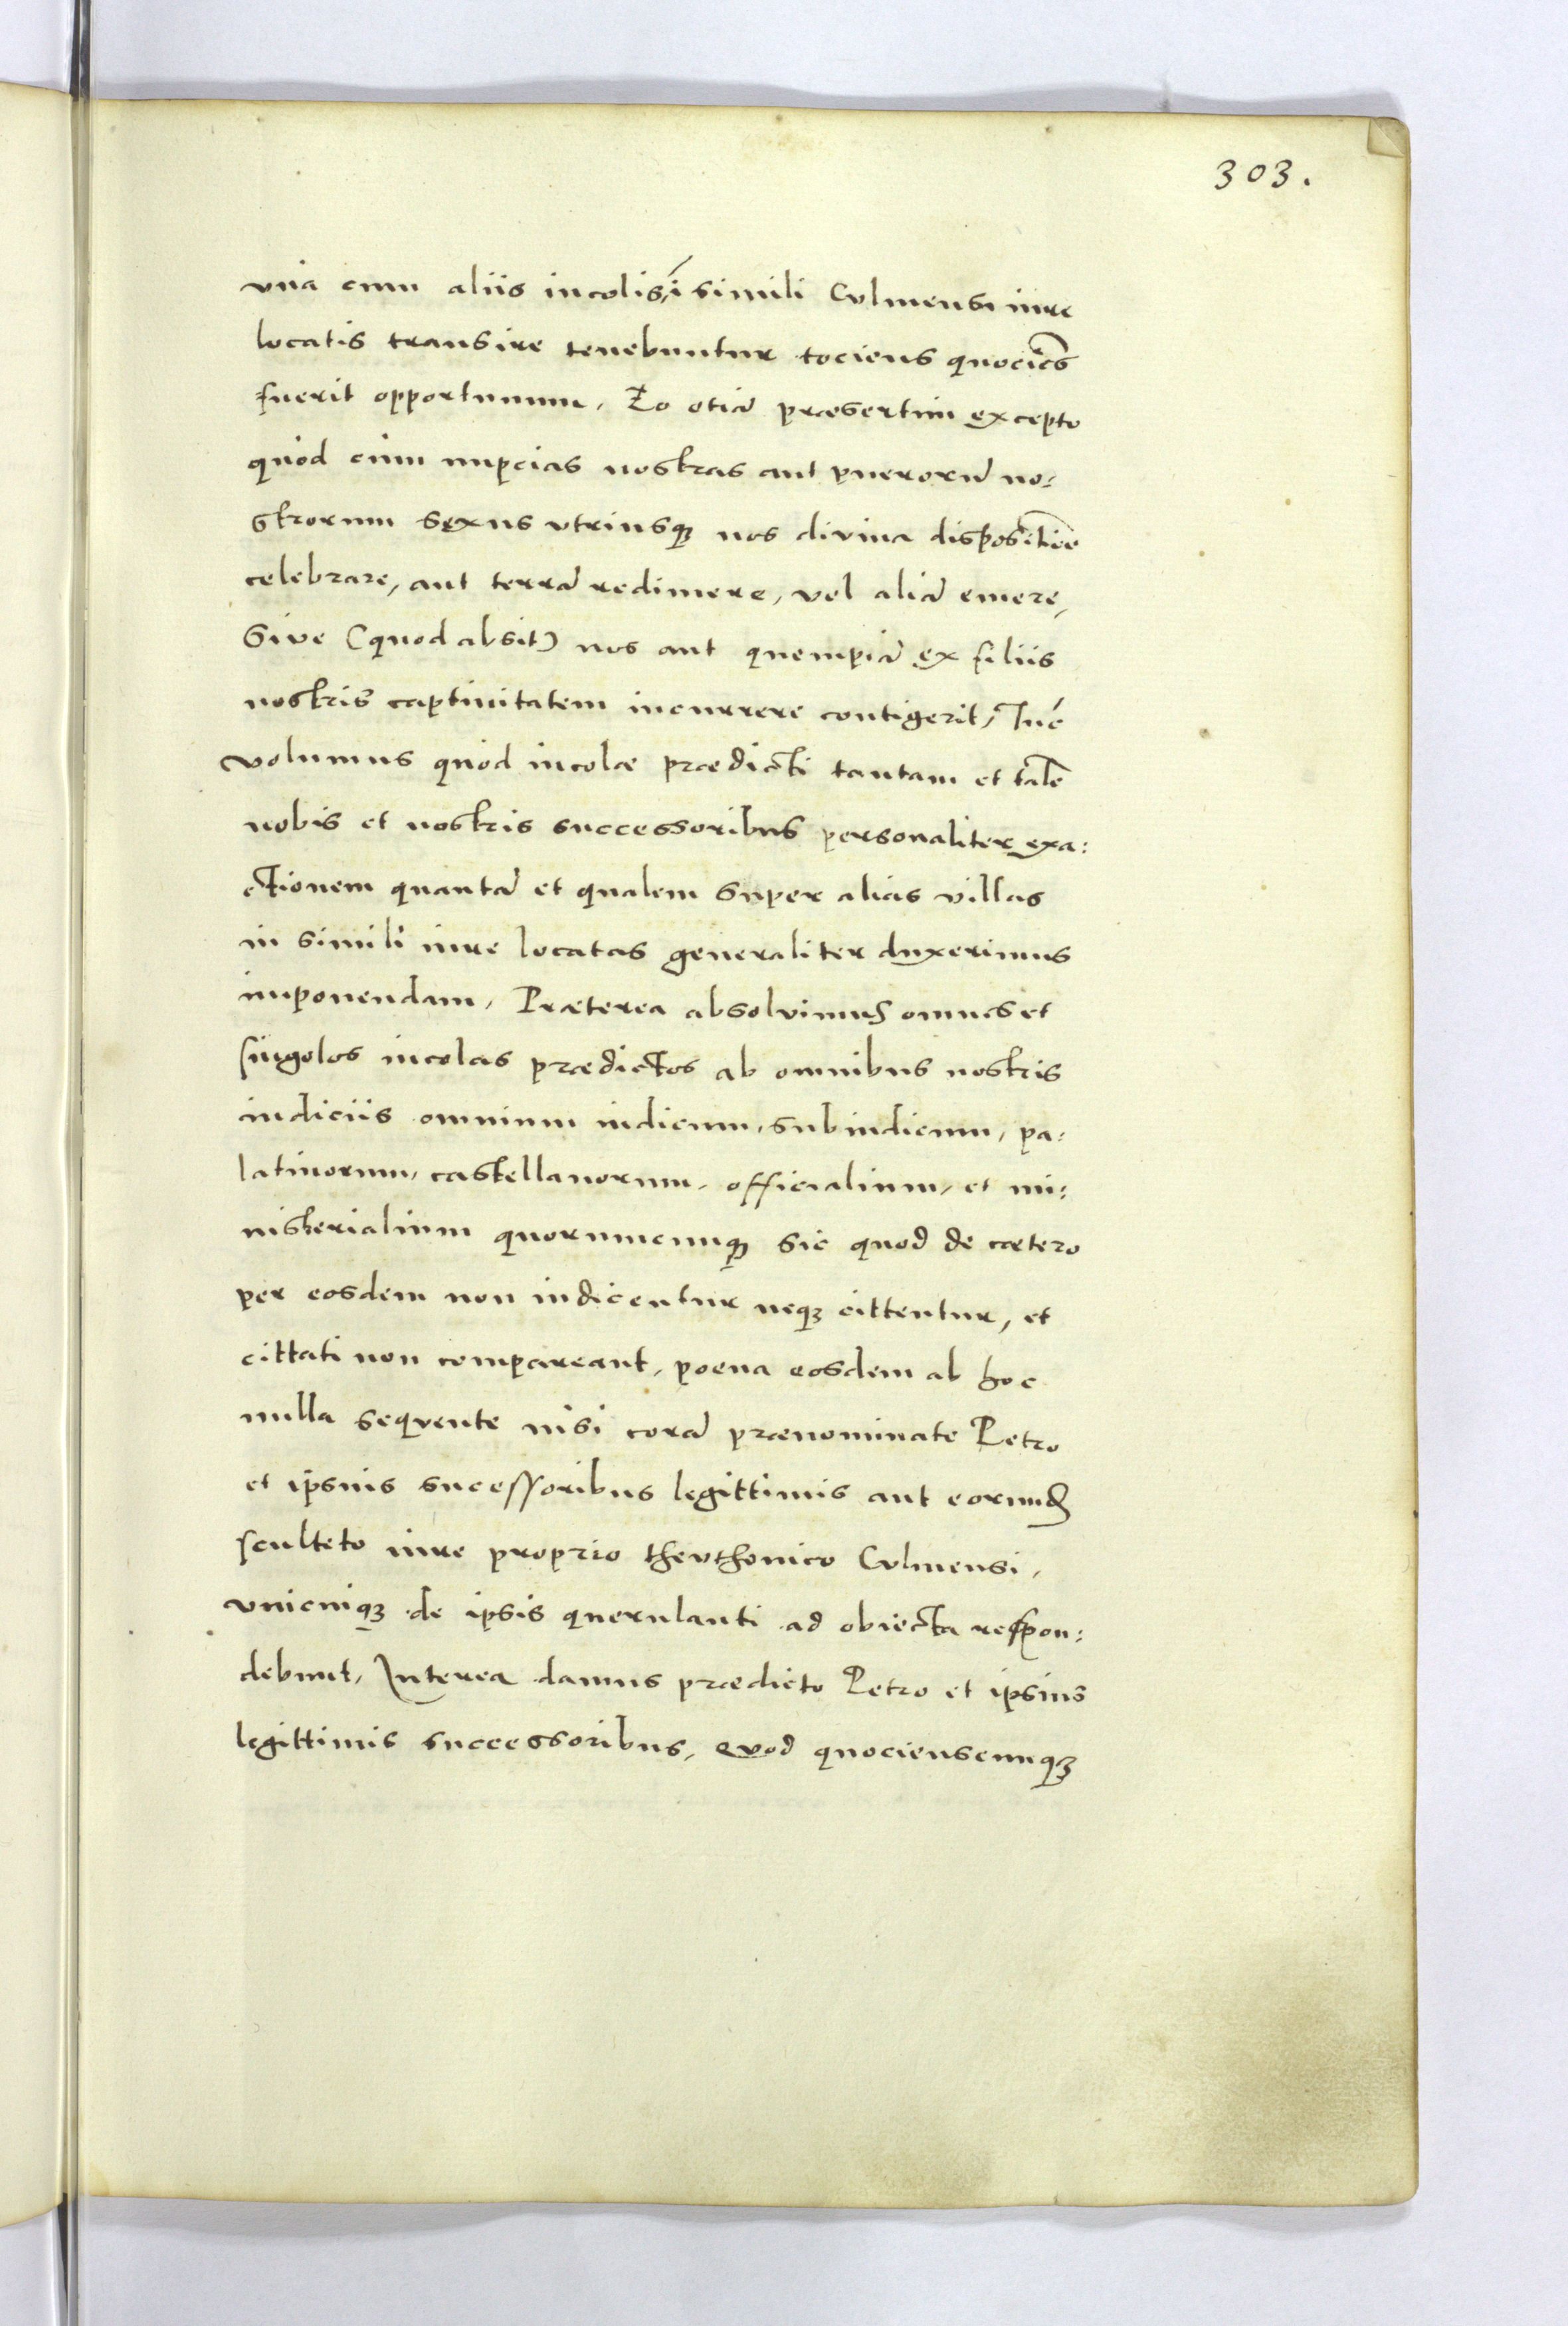 303.
vna cum aliis incolis, ĩ simili Culmensi iure
locatis transire tenebuntur tociens quociẽs
fuerit opportunum, Eo etiã præsertim excepto
quod cùm nupcias nostras aut puerorũ no:
strorum sexus vtriusqꝫ nos divina dispositiõe
celebrare, aut terrã redimere, vel aliã emere,
Sive (quod absit) nos aut quempiã ex filiis
nostris captiuitatem incurrere contigerit, Tũc
volumus quod incolæ prædicti tantam et talẽ
nobis et nostris successoribus personaliter exa:
ctionem quantã et qualem super alias villas
in simili iure locatas generaliter duxerimus
imponendam, Præterea absolvimus omnes et
singolos incolas prædictos ab omnibus nostris
iudiciis omnium iudicum, subiudicum, pa:
latinorum, castellanorum, officialium, et mi:
nisterialium quorumcunqꝫ sic quod de cætero
per eosdem non iudicentur neqꝫ cittentur, et
cittati non compareant, poena eosdem ab hoc
nulla seqvente nisi corã prænominate Petro
et ipsuis sucessoribus legittimis aut eorund̃
sculteto iure proprio thevthonico Culmensi,
vnicuiqꝫ de ipsis querulanti ad obiecta respon:
debunt, Interea damus prædicto Petro et ipsius
legittimis successoribus, qvod quocienscunqꝫ